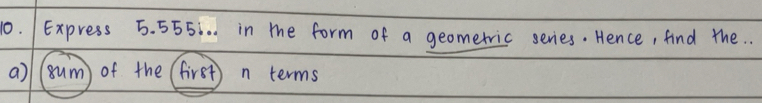 10. Express 5.555... in the form of a geometric series. Hence, find the..
a) sum of the first n terms